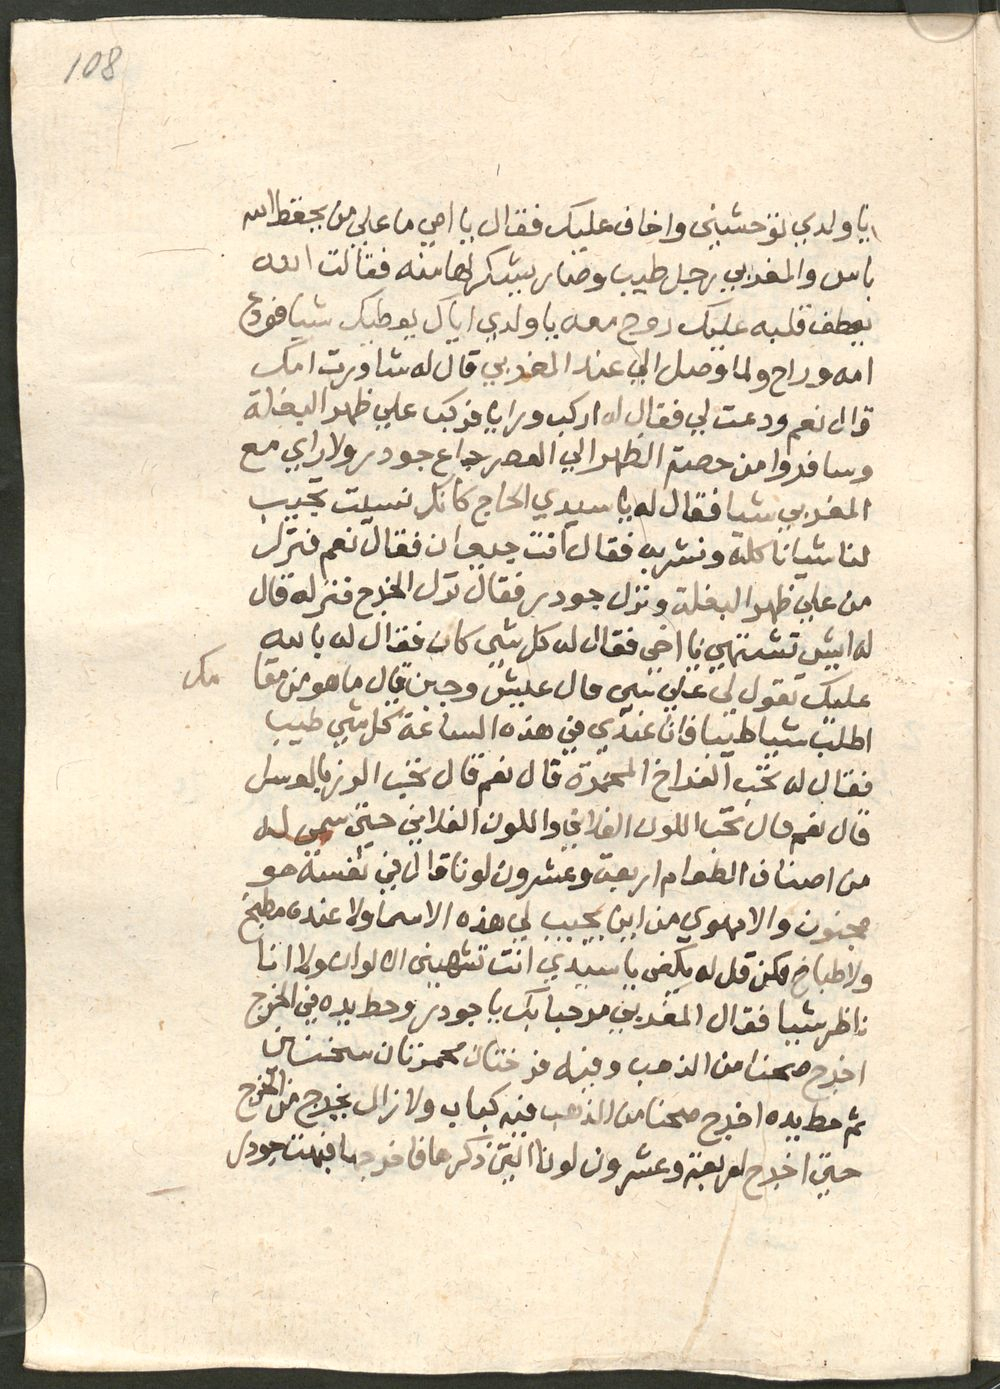 108
يا ولدي توحشيني واخاف عليك فقال يا امي ما علي من يحفظ الله
باس والمغربي رجل طيب وصار يشكر لها منه فقالت الله
يعطف قلبه عليك روح معه يا ولدي اياك يعطيك شيا فودع
امه وراح ولما وصل الي عند المغربي قال له شاورت امك
قال نعم ودعت لي فقال له اركب وراي فركب علي ظهر البغلة
وسافروا من حصة الظهر الي العصر جاع جودر ولا راي مع
المغربي شيا فقال له يا سيدي الحاج كانك نسيت تجيب
لنا شيا ناكله ونشربه فقال انت جيعان فقال نعم فنزل
من علي ظهر البغلة ونزل جودر فقال نزل الخرج فنزله قال
له ايش تشتهي يا اخي فقال له كل شي كان فقال له بالله
عليك تقول لي علي شي قال عليش وجبن قال ما هو من مقا مك
اطلب شيا طيبا فانا عندي في هذه الساعة كل شي طيب
فقال له تحب الفراخ المحمرة قال نعم قال تحب الرز بالعسل
قال نعم قال تحب اللون الفلاني واللون الفلاني حتي سمي له
من اصناف الطعام اربعة وعشرون لونا قال في نفسه هو
مجنون والا مهوي من اين يجيب لي هذه الاسما ولا عنده مطبخ
ولا طباخ لكن قل له يكفي يا سيدي انت تشهيني الالوان ولا انا
ناظر شيا فقال المغربي مرحبا بك يا جودر وحط يده في الخرج
اخرج صحنا من الذهب وفيه فرختان محمرتان سخنتان
ثم حط يده اخرج صحنا من الذهب فيه كباب ولا زال يخرج من الخرج
حتي اخرج اربعة وعشرون لونا التي ذكرها فاخرجها فبهت جودر